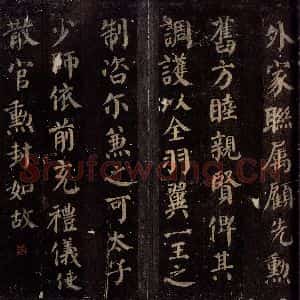 外家聯属顧先勲
舊方睦親賢俾其
調護以全羽翼一王之
制咨尔兼之可太子
少師依前充禮儀使
散官勲封如故
Shufawang.CN